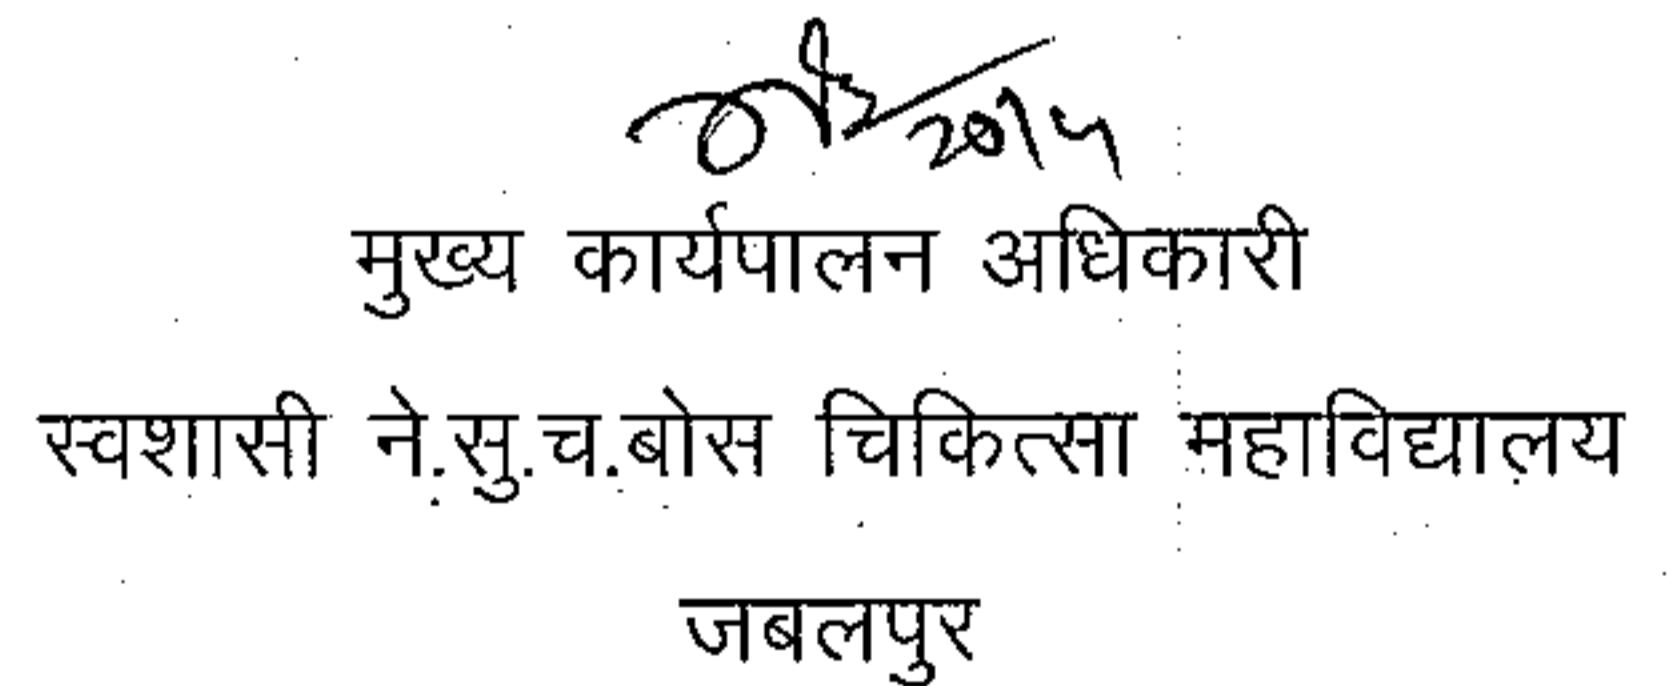 मुख्य कार्यपालन अधिकारी
स्वशासी ने.सु.च.बोस चिकित्सा महाविद्यालय
जबलपुर